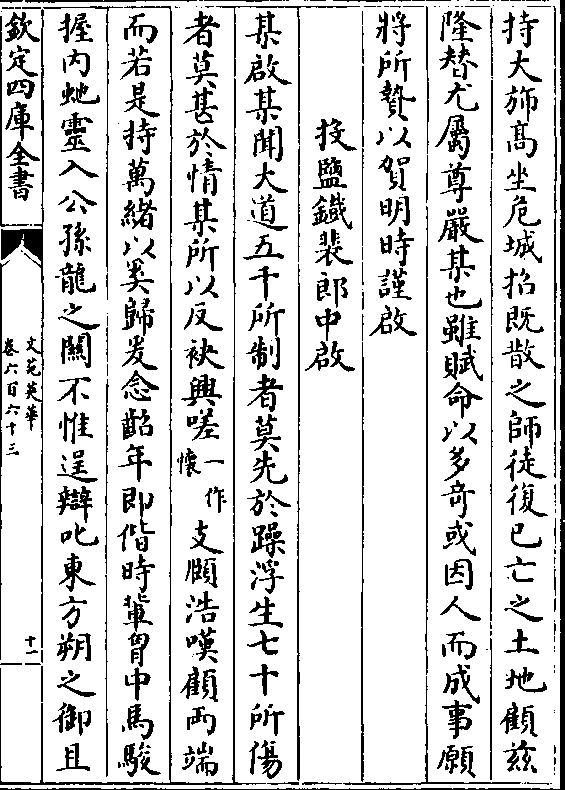 持大斾髙坐危城招既散之師徒復已亡之土地顧兹
隆替尤屬尊嚴某也雖賦命以多竒或因人而成事願
將所贄以賀明時謹啟
投鹽鐵裴郎中啟
某啟某聞大道五千所制者莫先於躁浮生七十所傷
者莫甚於情某所以反袂興嗟一作懐支頤浩嘆顧兩端
而若是持萬緒以奚歸爰念齠年即偕時輩胷中馬駿
握内虵靈入公孫龍之關不惟逞辯叱東方朔之御且
欽定四庫全書
文苑英華
卷六百六十三
十一